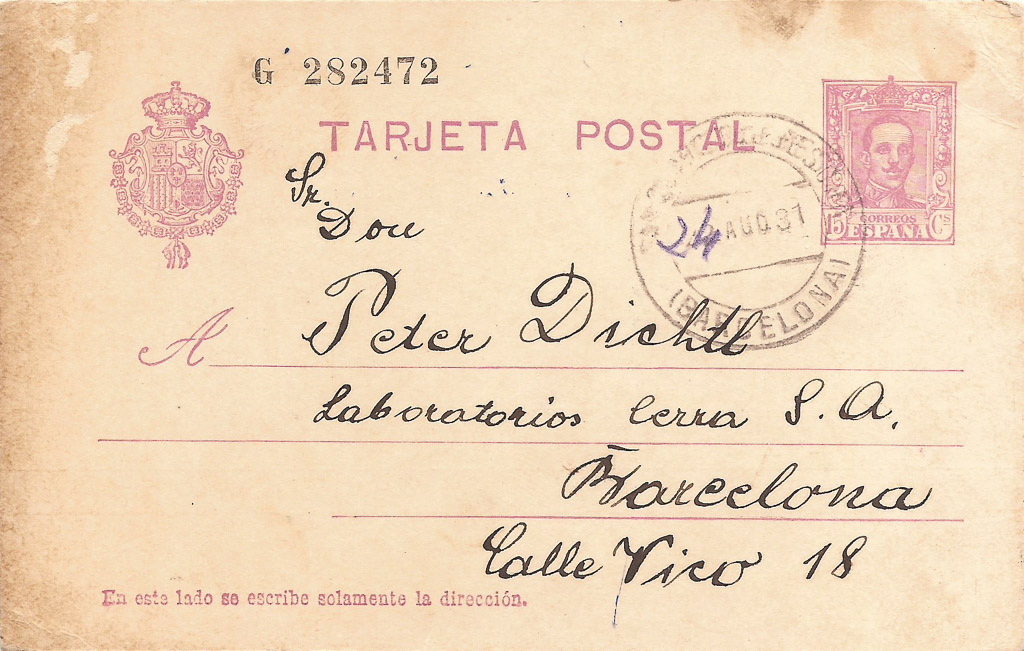 G 282472
TARJETA POSTAL
Sr.
Don
A Peter Dichtl
Laboratorios Cerra S. A.
Barcelona
Calle Vico 18
En este lado se escribe solamente la dirección.
24 AGO 31
(BARCELONA)
CORREOS
ESPAÑA
15 Cs